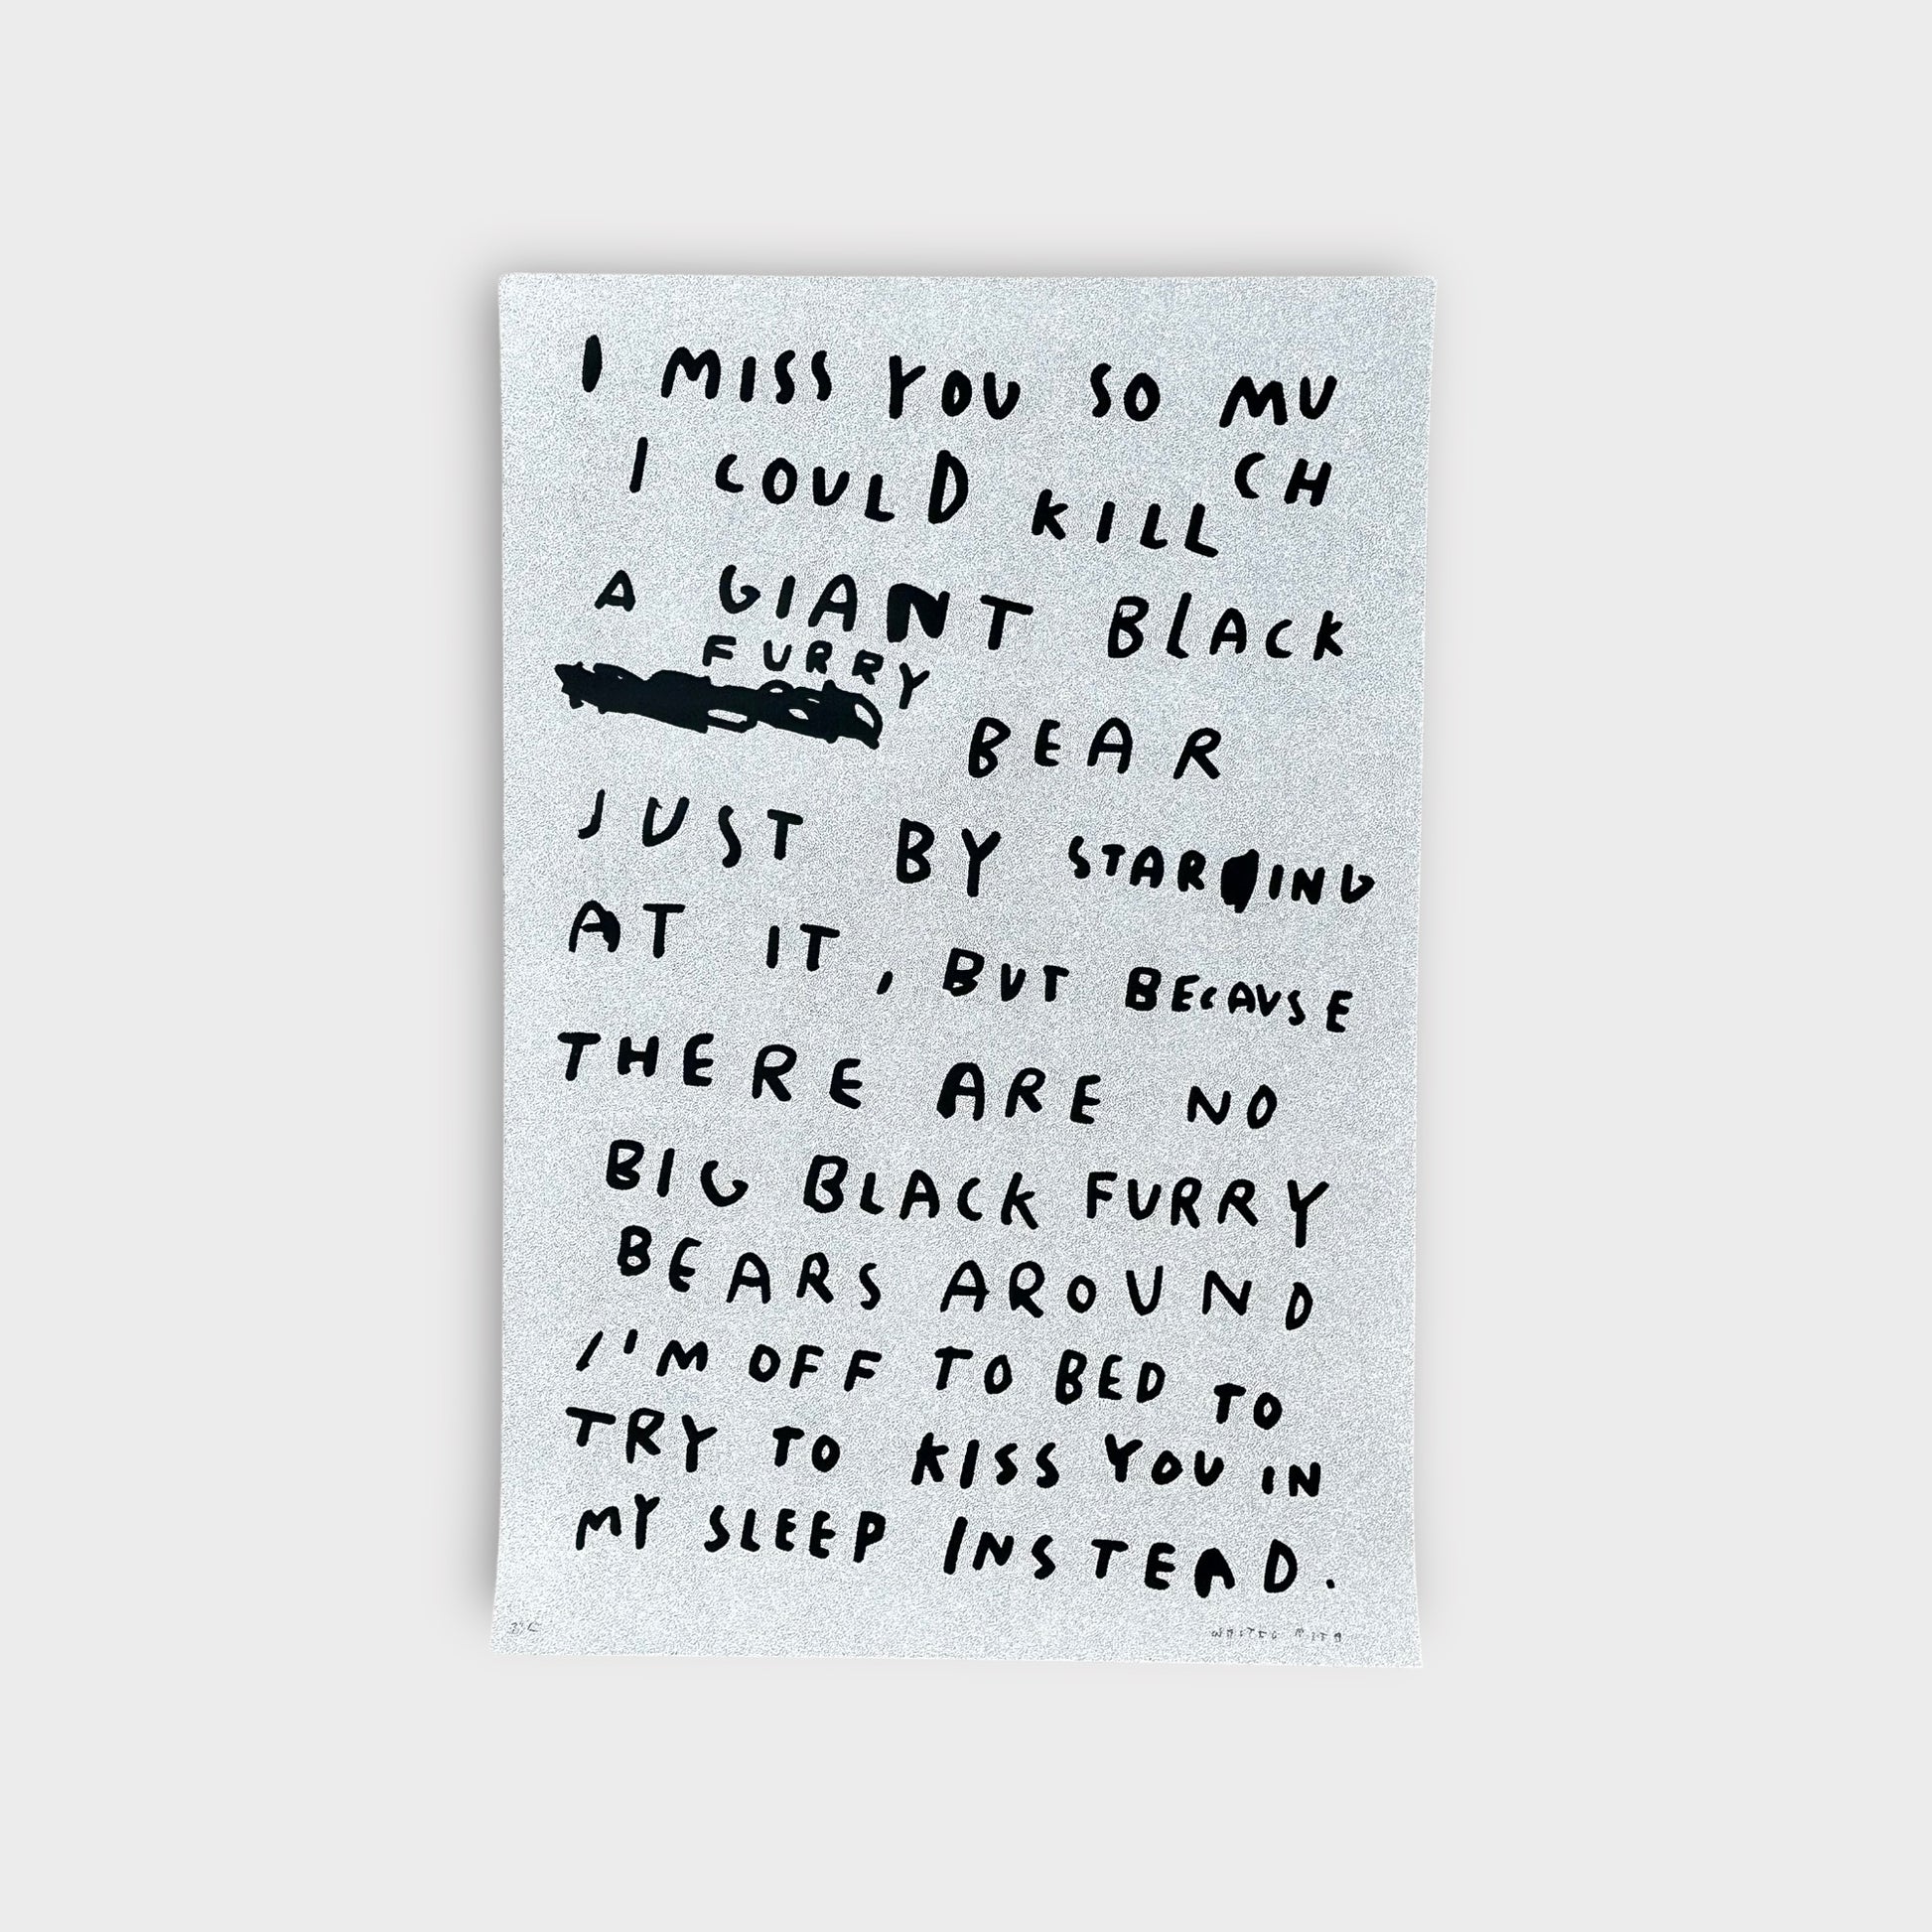 I MISS YOU SO MU
CH
I COULD KILL
A GIANT BLACK
FURRY
BEAR
JUST BY STARING
AT IT, BUT BECAUSE
THERE ARE NO
BIG BLACK FURRY
BEARS AROUND
I'M OFF TO BED TO
TRY TO KISS YOU IN
MY SLEEP INSTEAD.